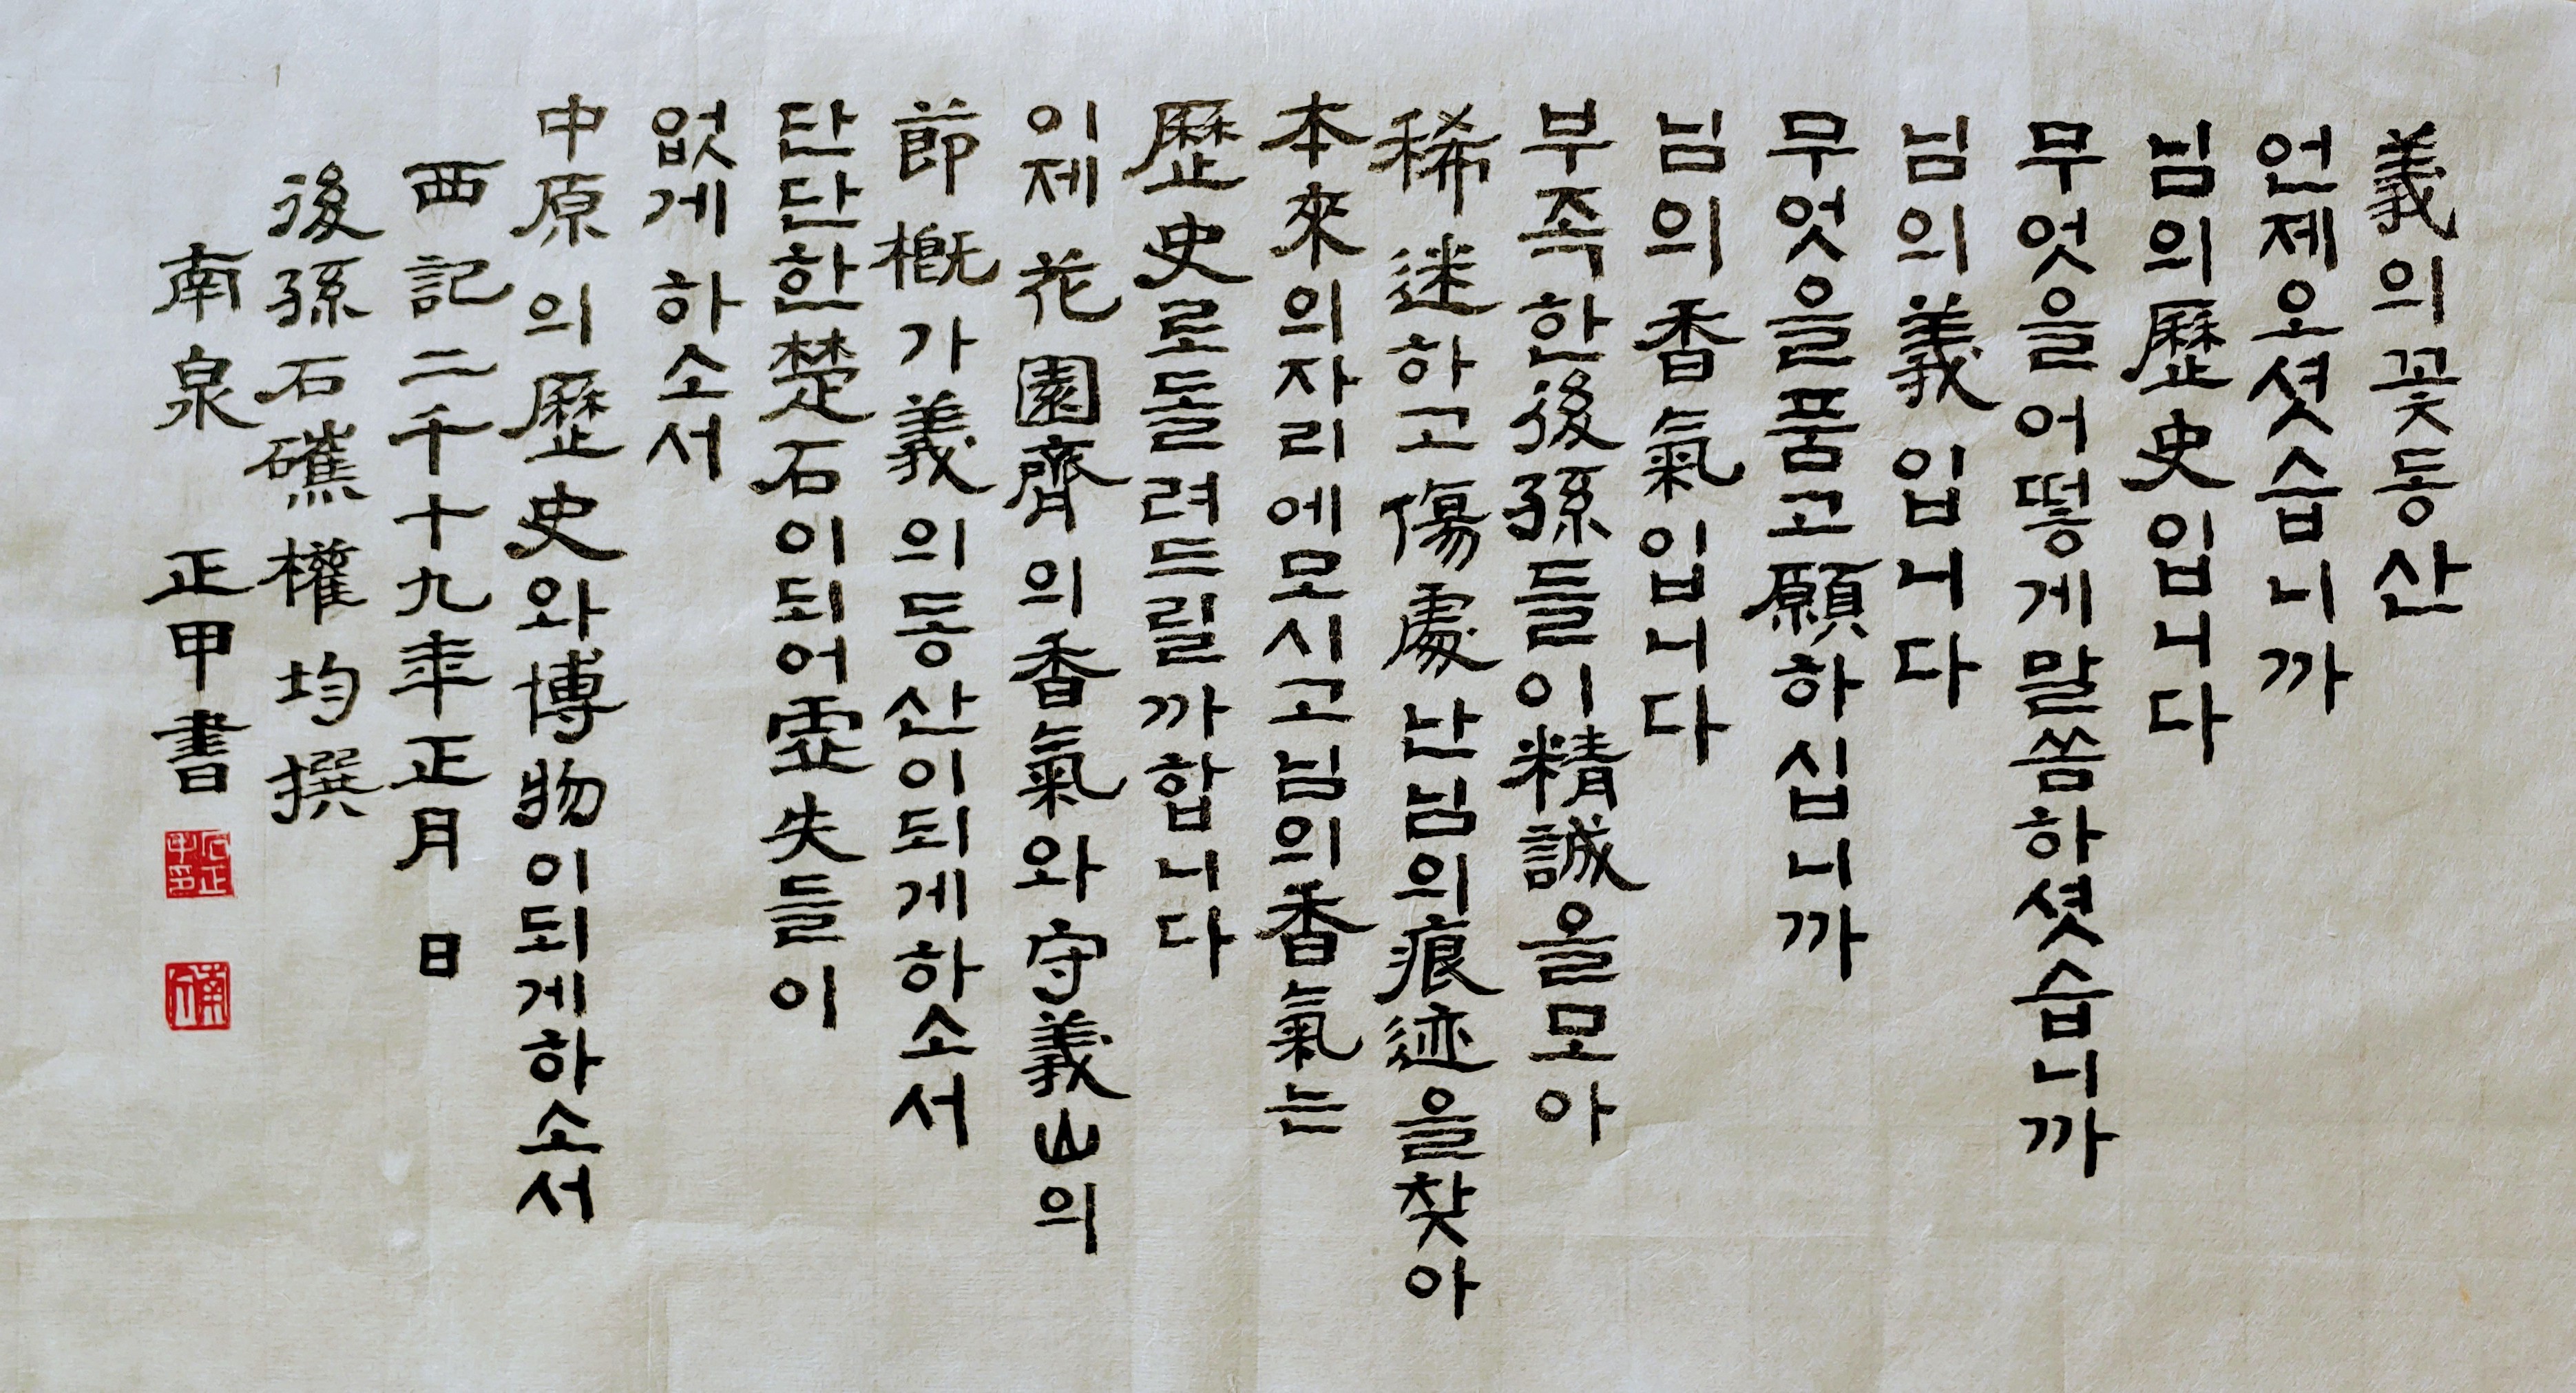 義의꽃동산
언제오셧습니까
님의歷史입니다
무엇을어떻게말씀하셧습니까
님의義입니다
무엇을품고願하십니까
님의香氣입니다
부족한後孫들이精誠을모아
稀迷하고傷處난님의痕迹을찾아
本來의자리에모시고님의香氣는
歷史로돌려드릴까합니다
이제花園齊의香氣와守義山의
節槪가義의동산이되게하소서
단단한楚石이되어虛失들이
없게하소서
中原의歷史와博物이되게하소서
西記二千十九年正月 日
後孫石礁權均撰
南泉 正甲書